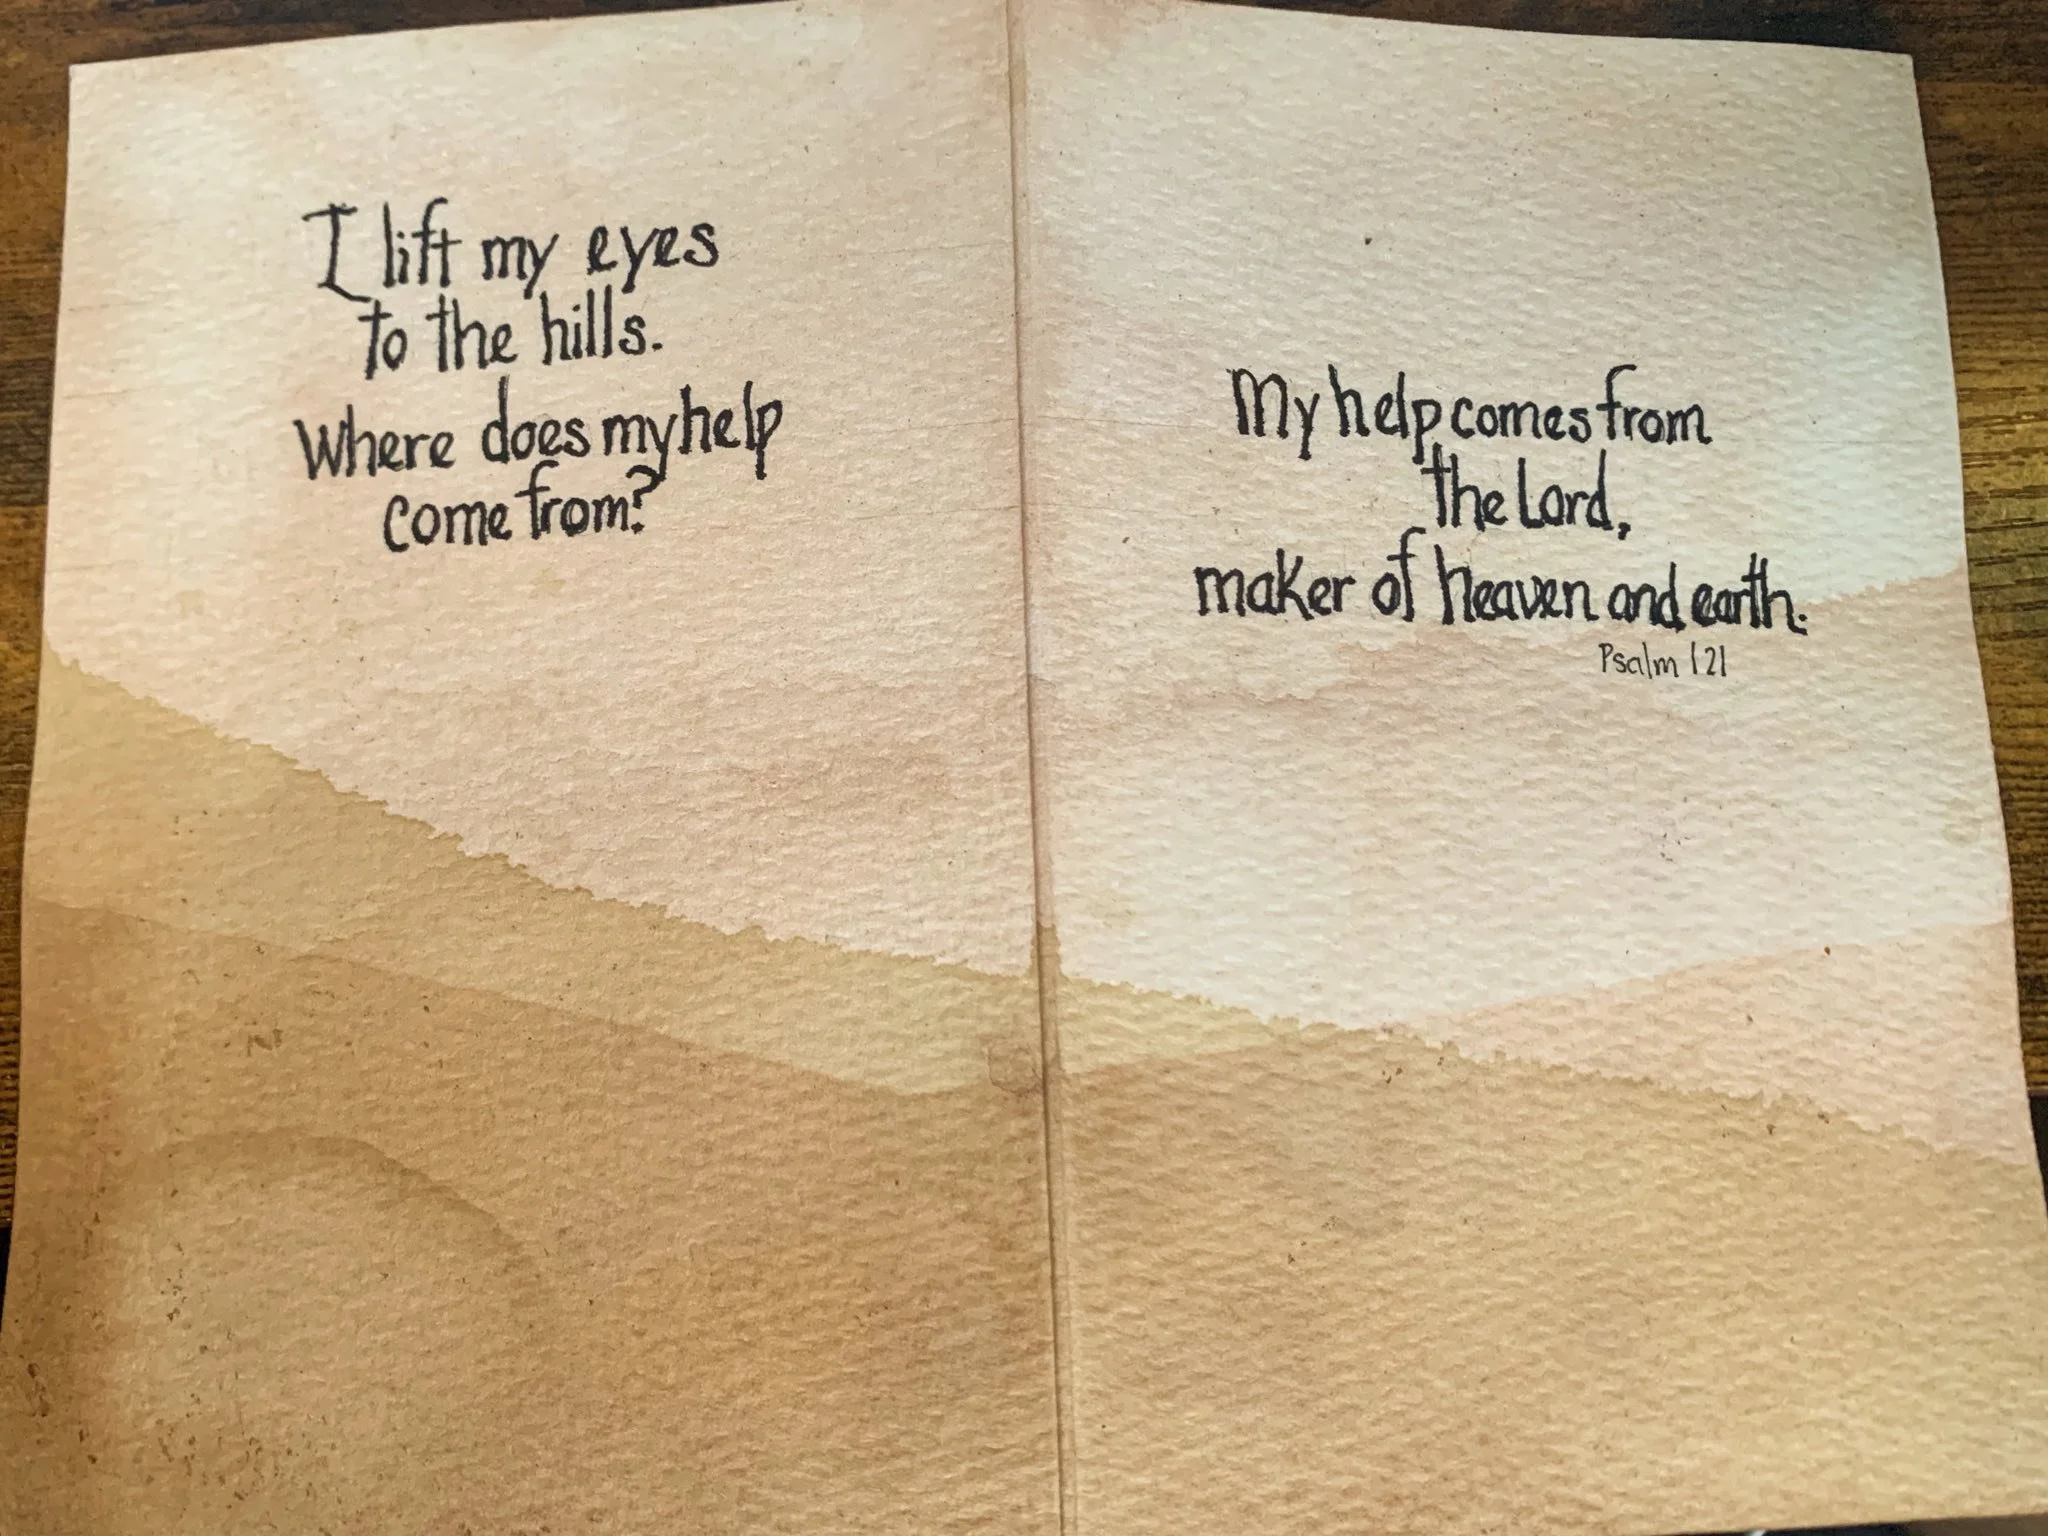 I lift my eyes
to the hills.
Where does my help
come from?
My help comes from
the Lord,
maker of heaven and earth.
Psalm 121